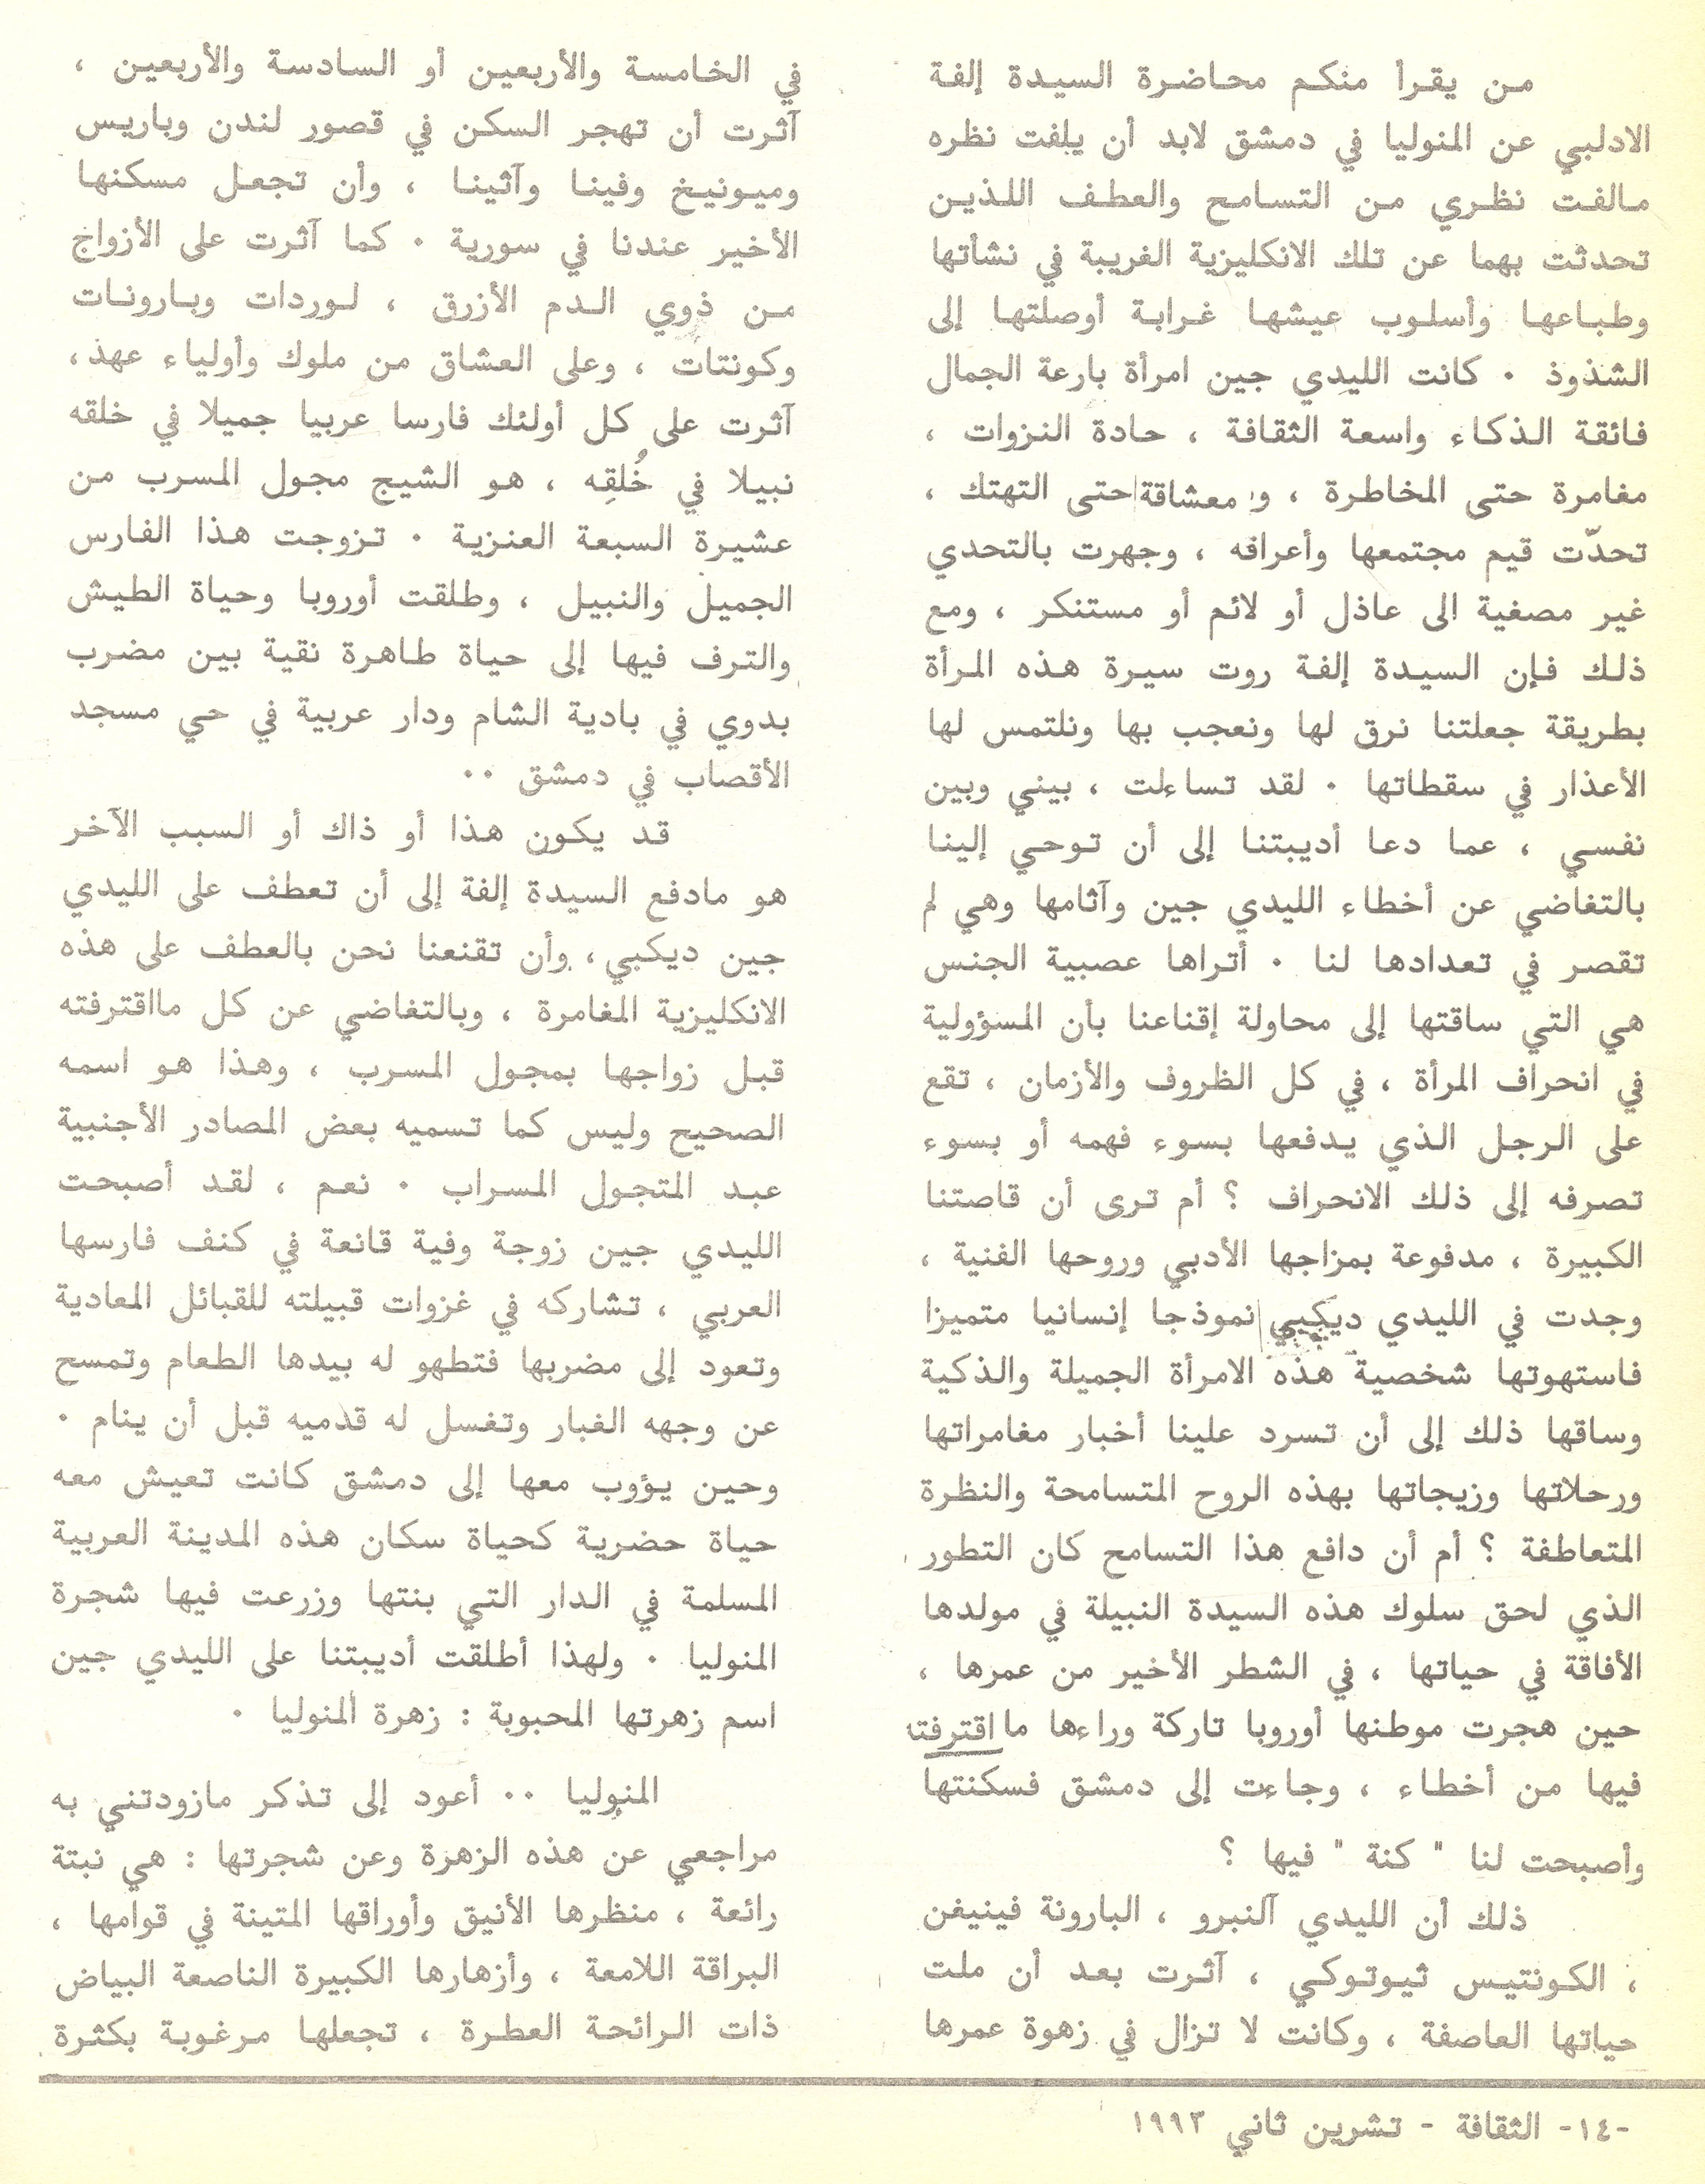 من يقرأ منكم محاضرة السيدة إلفة
الادلبي عن المنوليا في دمشق لابد أن يلفت نظره
مالفت نظري من التسامح والعطف اللذين
تحدثت بهما عن تلك الانكليزية الغريبة في نشأتها
وطباعها وأسلوب عيشها غرابة أوصلتها إلى
الشذوذ . كانت الليدي جين امرأة بارعة الجمال
فائقة الذكاء واسعة الثقافة ، حادة النزوات ،
مغامرة حتى المخاطرة ، و معشاقة حتى التهتك ،
تحدّت قيم مجتمعها وأعرافه ، وجهرت بالتحدي
غير مصغية الى عاذل أو لائم أو مستنكر ، ومع
ذلك فإن السيدة إلفة روت سيرة هذه المرأة
بطريقة جعلتنا نرق لها ونعجب بها ونلتمس لها
الأعذار في سقطاتها . لقد تساءلت ، بيني وبين
نفسي ، عما دعا أديبتنا إلى أن توحي إلينا
بالتغاضي عن أخطاء الليدي جين وآثامها وهي لم
تقصر في تعدادها لنا . أتراها عصبية الجنس
هي التي ساقتها إلى محاولة إقناعنا بأن المسؤولية
في انحراف المرأة ، في كل الظروف والأزمان ، تقع
على الرجل الذي يدفعها بسوء فهمه أو بسوء
تصرفه إلى ذلك الانحراف ؟ أم ترى أن قاصتنا
الكبيرة ، مدفوعة بمزاجها الأدبي وروحها الفنية ،
وجدت في الليدي ديكبي نموذجا إنسانيا متميزا
فاستهوتها شخصية هذه الامرأة الجميلة والذكية
وساقها ذلك إلى أن تسرد علينا أخبار مغامراتها
ورحلاتها وزيجاتها بهذه الروح المتسامحة والنظرة
المتعاطفة ؟ أم أن دافع هذا التسامح كان التطور
الذي لحق سلوك هذه السيدة النبيلة في مولدها
الأفاقة في حياتها ، في الشطر الأخير من عمرها ،
حين هجرت موطنها أوروبا تاركة وراءها ما اقترفته
فيها من أخطاء ، وجاءت إلى دمشق فسكنتها
وأصبحت لنا " كنة " فيها ؟
ذلك أن الليدي آلنبرو ، البارونة فينيغن
، الكونتيس ثيوتوكي ، آثرت بعد أن ملت
حياتها العاصفة ، وكانت لا تزال في زهوة عمرها
في الخامسة والأربعين أو السادسة والأربعين ،
آثرت أن تهجر السكن في قصور لندن وباريس
وميونيخ وفينا وآثينا ، وأن تجعل مسكنها
الأخير عندنا في سورية . كما آثرت على الأزواج
من ذوي الدم الأزرق ، لوردات وبارونات
وكونتات ، وعلى العشاق من ملوك وأولياء عهد،
آثرت على كل أولئك فارسا عربيا جميلا في خلقه
نبيلا في خُلقِه ، هو الشيخ مجول المسرب من
عشيرة السبعة العنزية . تزوجت هذا الفارس
الجميل والنبيل ، وطلقت أوروبا وحياة الطيش
والترف فيها إلى حياة طاهرة نقية بين مضرب
بدوي في بادية الشام ودار عربية في حي مسجد
الأقصاب في دمشق ..
قد يكون هذا أو ذاك أو السبب الآخر
هو مادفع السيدة إلفة إلى أن تعطف على الليدي
جين ديكبي، وأن تقنعنا نحن بالعطف على هذه
الانكليزية المغامرة ، وبالتغاضي عن كل مااقترفته
قبل زواجها بمجول المسرب ، وهذا هو اسمه
الصحيح وليس كما تسميه بعض المصادر الأجنبية
عبد المتجول المسراب . نعم ، لقد أصبحت
الليدي جين زوجة وفية قانعة في كنف فارسها
العربي ، تشاركه في غزوات قبيلته للقبائل المعادية
وتعود إلى مضربها فتطهو له بيدها الطعام وتمسح
عن وجهه الغبار وتغسل له قدميه قبل أن ينام .
وحين يؤوب معها إلى دمشق كانت تعيش معه
حياة حضرية كحياة سكان هذه المدينة العربية
المسلمة في الدار التي بنتها وزرعت فيها شجرة
المنوليا . ولهذا أطلقت أديبتنا على الليدي جين
اسم زهرتها المحبوبة : زهرة المنوليا .
المنوليا .. أعود إلى تذكر مازودتني به
مراجعي عن هذه الزهرة وعن شجرتها : هي نبتة
رائعة ، منظرها الأنيق وأوراقها المتينة في قوامها ،
البراقة اللامعة ، وأزهارها الكبيرة الناصعة البياض
ذات الرائحة العطرة ، تجعلها مرغوبة بكثرة
-١٤- الثقافة - تشرين ثاني ١٩٩٣